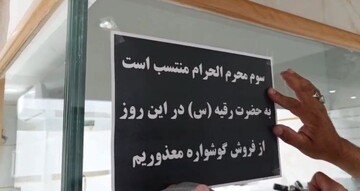 سوم محرم الحرام منتسب است
به حضرت رقیه (س) در این روز
از فروش گوشواره معذوریم